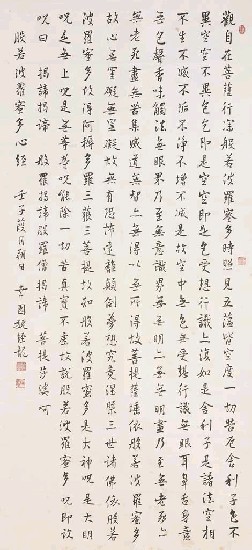 觀自在菩薩行深般若波羅蜜多時照見五蘊皆空度一切苦厄舍利子色不
異空空不異色色即是空空即是色受想行識亦復如是舍利子是諸法空相
不生不滅不垢不淨不增不減是故空中無色無受想行識無眼耳鼻舌身意
無色聲香味觸法無眼界乃至無意識界無無明亦無無明盡乃至無老死亦
無老死盡無苦集滅道無智亦無得以無所得故菩提薩埵依般若波羅蜜多
故心無罣礙無罣礙故無有恐怖遠離顛倒夢想究竟涅槃三世諸佛依般若
波羅蜜多故得阿耨多羅三藐三菩提故知般若波羅蜜多是大神呪是大明
呪是無上呪是無等等呪能除一切苦真實不虛故說般若波羅蜜多呪即說
呪曰 揭諦揭諦 般羅揭諦般羅僧揭諦 菩提薩婆訶
般若波羅蜜多心經 壬子